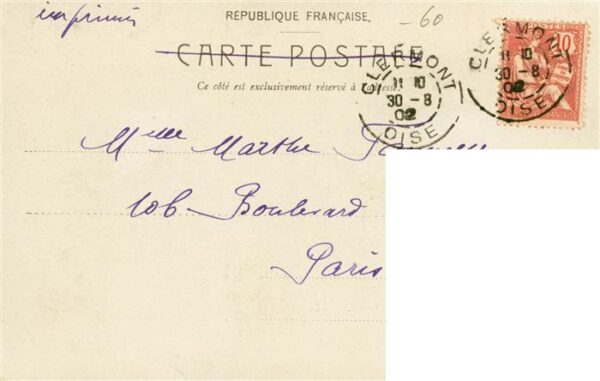 imprimés
RÉPUBLIQUE FRANÇAISE.
-60
CARTE POSTALE
Ce côté est exclusivement réservé à l'adresse.
CLERMONT
11 10
30 - 8
02
OISE
CLERMONT
11 10
30 - 8
02
OISE
10
Mme Marthe
106 Boulevard
Paris